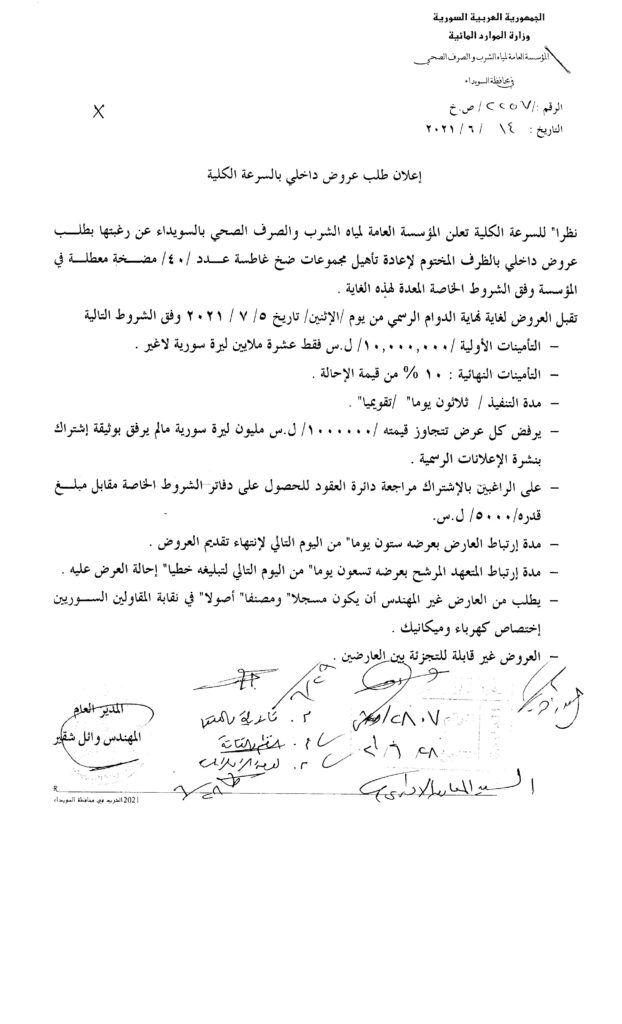 الجمهورية العربية السورية
وزارة الموارد المائية
المؤسسة العامة لمياه الشرب والصرف الصحي
في محافظة السويداء
الرقم :/٢٢٥٧/ ص.خ
التاريخ : ١٤ / ٦ / ٢٠٢١
X
إعلان طلب عروض داخلي بالسرعة الكلية
نظرا" للسرعة الكلية تعلن المؤسسة العامة لمياه الشرب والصرف الصحي بالسويداء عن رغبتها بطلب
عروض داخلي بالظرف المختوم لإعادة تأهيل مجموعات ضخ غاطسة عدد /٤٠/ مضخة معطلة في
المؤسسة وفق الشروط الخاصة المعدة لهذه الغاية .
تقبل العروض لغاية نهاية الدوام الرسمي من يوم /الإثنين/ تاريخ ٥/ ٧ / ٢٠٢١ وفق الشروط التالية
– التأمينات الأولية /١٠,٠٠٠,٠٠٠/ ل.س فقط عشرة ملايين ليرة سورية لاغير .
– التأمينات النهائية : ١٠ % من قيمة الإحالة .
– مدة التنفيذ / ثلاثون يوما" /تقويميا" .
– يرفض كل عرض تتجاوز قيمته /١٠٠٠٠٠٠/ ل.س مليون ليرة سورية مالم يرفق بوثيقة إشتراك
بنشرة الإعلانات الرسمية .
– على الراغبين بالإشتراك مراجعة دائرة العقود للحصول على دفاتر الشروط الخاصة مقابل مبلغ
قدره/٥٠٠٠/ ل.س.
– مدة إرتباط العارض بعرضه ستون يوما" من اليوم التالي لإنتهاء تقديم العروض .
– مدة إرتباط المتعهد المرشح بعرضه تسعون يوما" من اليوم التالي لتبليغه خطيا" إحالة العرض عليه .
– يطلب من العارض غير المهندس أن يكون مسجلا" ومصنفا" أصولا" في نقابة المقاولين السوريين
إختصاص كهرباء وميكانيك .
– العروض غير قابلة للتجزئة بين العارضين .
المدير العام
المهندس وائل شقير
R
2021 الخريم في محافظة السويداء